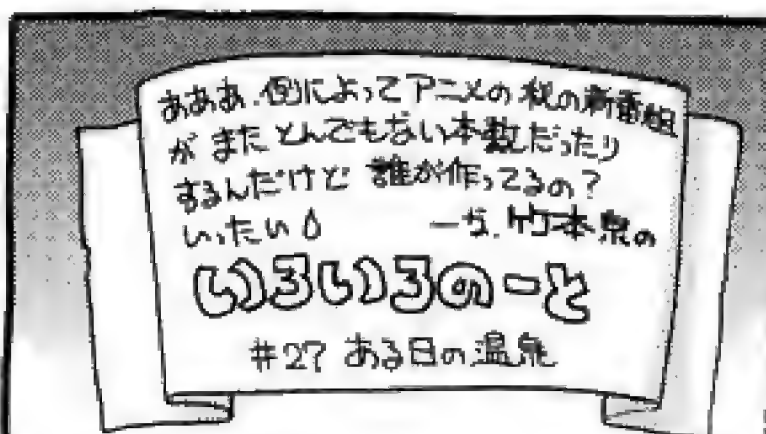 あああ、例によってアニメの秋の新番組
が またとんでもない本数だったり
するんだけど 誰が作ってるの?
いったい 竹本泉の
いろいろのーと
#27 ある日の温泉